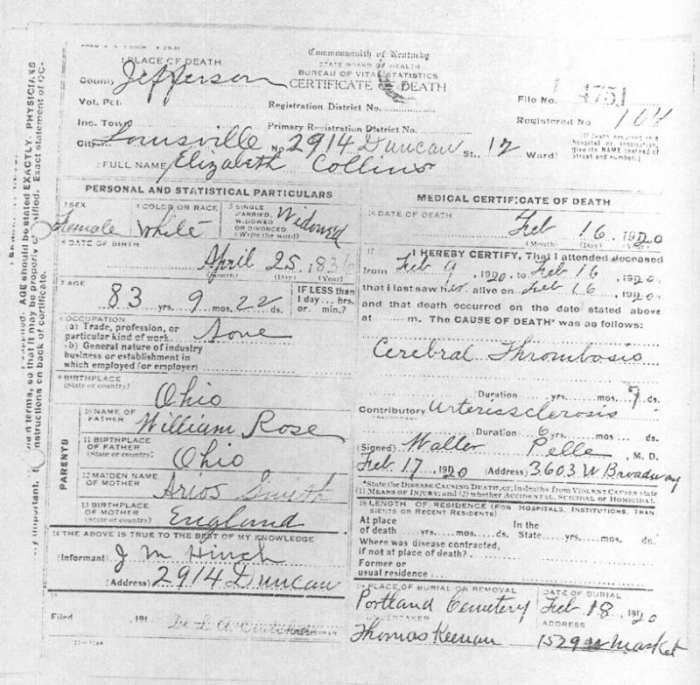 Commonwealth of Kentucky
STATE BOARD OF HEALTH
BUREAU OF VITAL STATISTICS
CERTIFICATE OF DEATH
1 PLACE OF DEATH
County Jefferson
Vot. Pct.
Registration District No.
File No. 4751
Inc. Town
Primary Registration District No.
Registered No. 164
City Louisville No. 2914 Duncan St., 12 Ward
FULL NAME Elizabeth Collins
PERSONAL AND STATISTICAL PARTICULARS
3 SEX Female
4 COLOR OR RACE White
5 SINGLE MARRIED, WIDOWED OR DIVORCED (Write the word) Widowed
6 DATE OF BIRTH
April 25, 183
(Month) (Day) (Year)
7 AGE
83 yrs. 9 mos. 22 ds.
IF LESS than 1 day... hrs. or min.?
8 OCCUPATION
(a) Trade, profession, or particular kind of work
(b) General nature of industry
business or establishment in
which employed (or employer)
9 BIRTHPLACE
(State or country) Ohio
PARENTS
10 NAME OF FATHER William Rose
11 BIRTHPLACE OF FATHER (State or country) Ohio
12 MAIDEN NAME OF MOTHER Smith
13 BIRTHPLACE OF MOTHER (State or country) England
14 THE ABOVE IS TRUE TO THE BEST OF MY KNOWLEDGE
(Informant) J M Hinch
(Address) 2914 Duncan
Filed 191
MEDICAL CERTIFICATE OF DEATH
16 DATE OF DEATH
Feb 16 1920
(Month) (Day)
17 I HEREBY CERTIFY, That I attended deceased
from Feb 9, 1920, to Feb 16, 1920,
that I last saw her alive on Feb 16, 1920,
and that death occurred on the date stated above
at m. The CAUSE OF DEATH was as follows:
Cerebral Thrombosis
Duration yrs. mos. 7 ds.
Contributory Arteriosclerosis
Duration 6 yrs. mos. ds.
(Signed) Walter Pelle, M. D.
Feb 17, 1920 (Address) 3603 W Broadway
*State the DISEASE CAUSING DEATH, or, in deaths from VIOLENT CAUSES state
(1) MEANS OF INJURY; and (2) whether ACCIDENTAL, SUICIDAL or HOMICIDAL.
18 LENGTH OF RESIDENCE (FOR HOSPITALS, INSTITUTIONS, TRANSIENTS OR RECENT RESIDENTS)
At place of death yrs. mos. ds. In the State yrs. mos. ds.
Where was disease contracted,
if not at place of death?
Former or
usual residence
19 PLACE OF BURIAL OR REMOVAL Portland Cemetery
DATE OF BURIAL Feb 18, 1920
UNDERTAKER Thomas Keenan
ADDRESS 1529 W Market